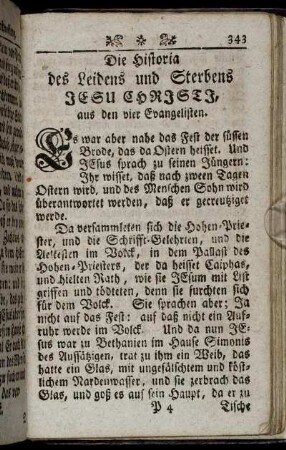 343
Die Historia
des Leidens und Sterbens
JESU CHRISTI,
aus den vier Evangelisten.
Es war aber nahe das Fest der süssen
Brode, das da Ostern heisset. Und
JEsus sprach zu seinen Jüngern:
Ihr wisset, daß nach zween Tagen
Ostern wird, und des Menschen Sohn wird
überantwortet werden, daß er gecreutziget
werde.
Da versammleten sich die Hohen-Prie-
ster, und die Schrifft-Gelehrten, und die
Aeltesten im Volck, in dem Pallast des
Hohen-Priesters, der da heisset Caiphas,
und hielten Rath, wie sie JEsum mit List
griffen und tödteten, denn sie furchten sich
für dem Volck. Sie sprachen aber: Ja
nicht auf das Fest: auf daß nicht ein Auf-
ruhr werde im Volck. Und da nun JE-
sus war zu Bethanien im Hause Simonis
des Aussätzigen, trat zu ihm ein Weib, das
hatte ein Glas, mit ungefälschtem und köst-
lichem Nardenwasser, und sie zerbrach das
Glas, und goß es auf sein Haupt, da er zu
P 4 Tische